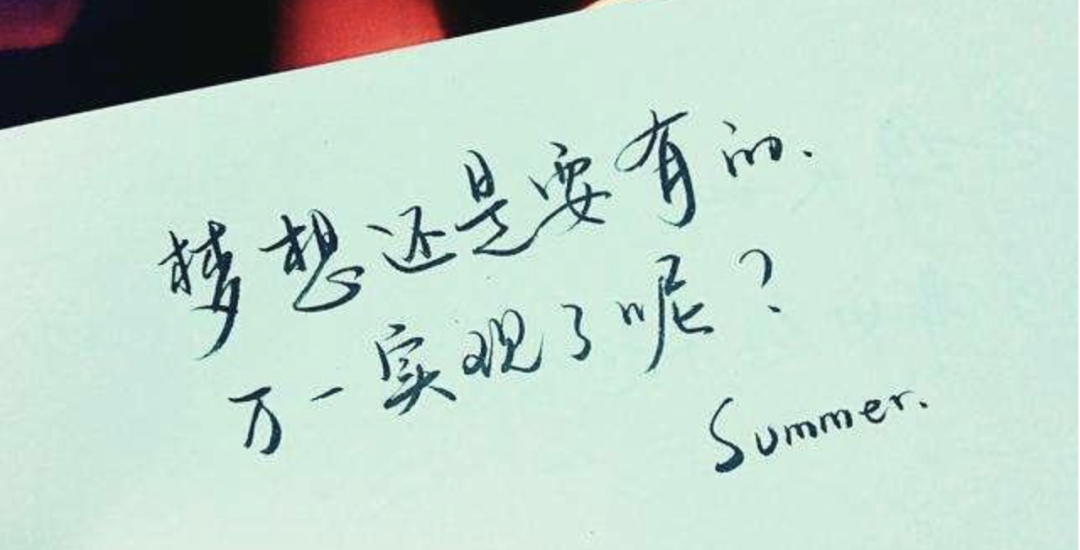 梦想还是要有的.
万一实现了呢?
Summer.